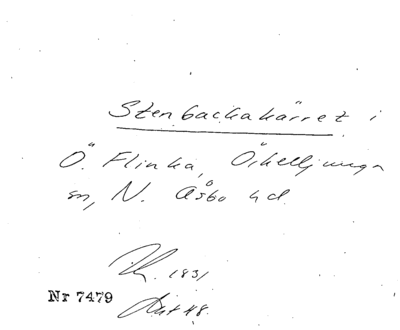 Stenbackakärret i
Ö. Flinka, Örkelljunga
sn, N. Åsbo hd.
1831
Nr 7479